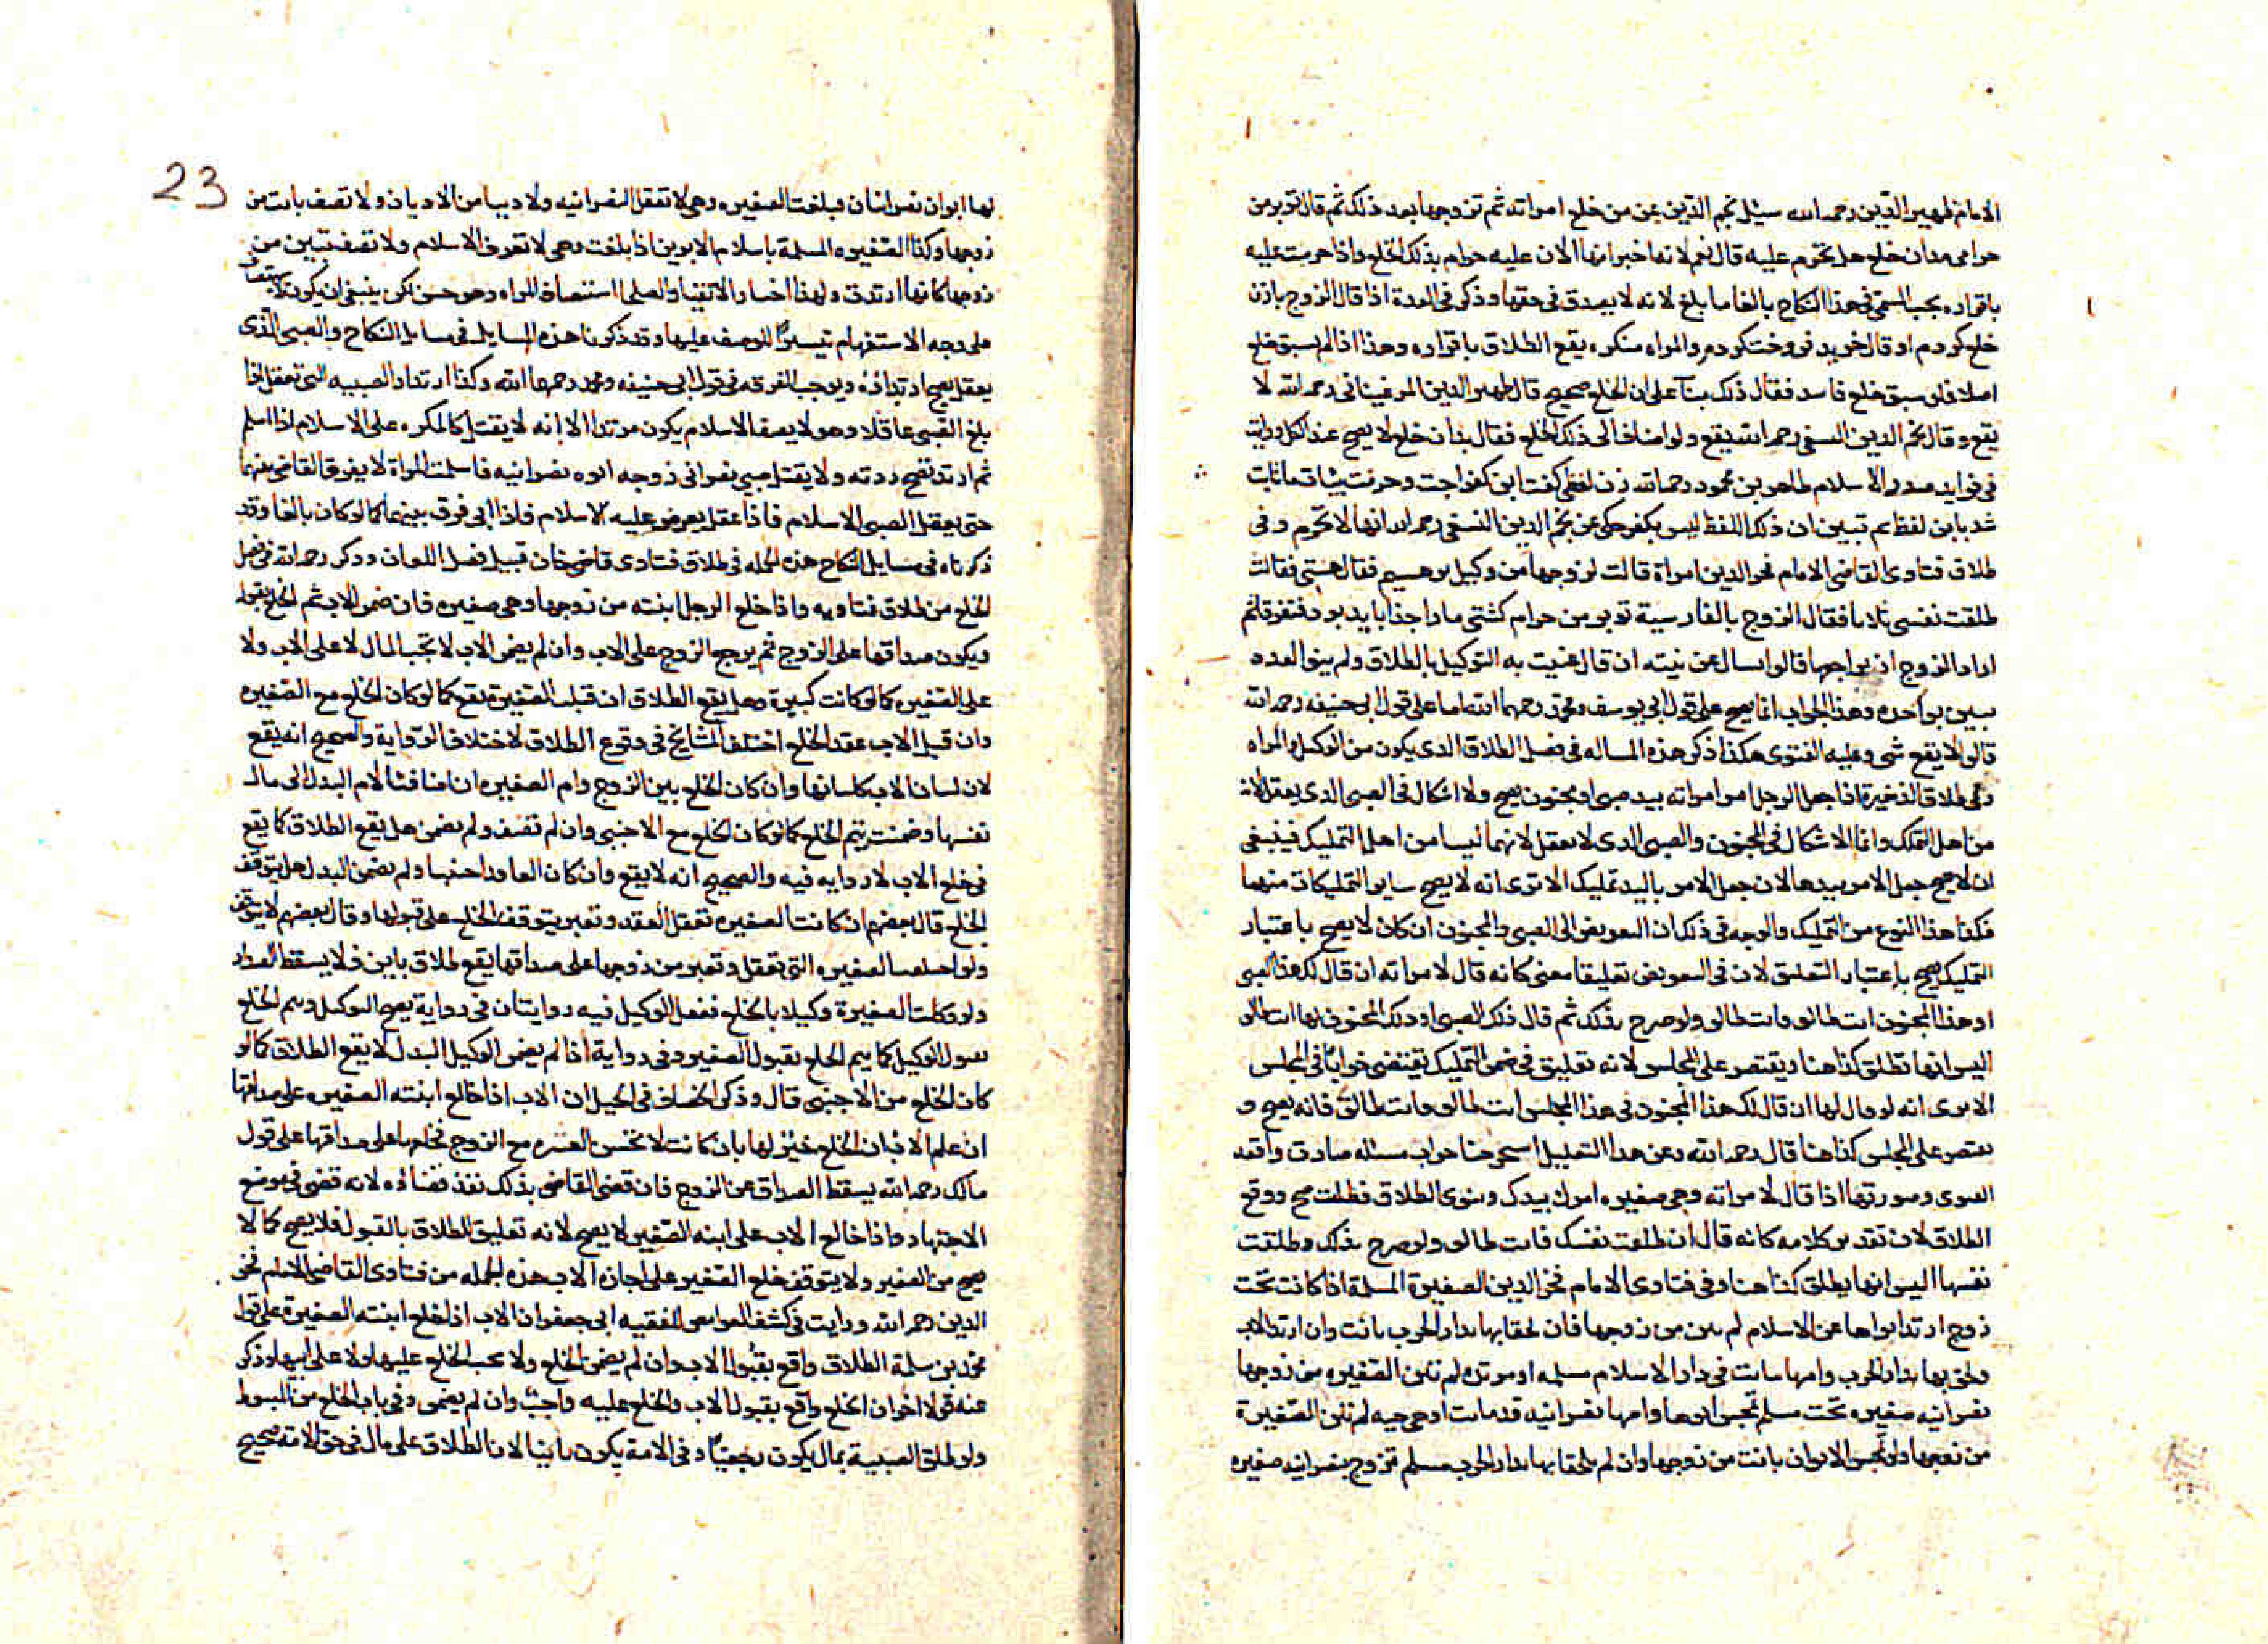 الامام ظهير الدين رحمه الله سئل نجم الدين عمن خلع امراته ثم تزوجها بعد ذلك ثم قال تو بر من
حرامى بدان خلع هل تحرم عليه قال نعم لانه اخبر انها الان عليه حرام بذلك الخلع واذا حرمت عليه
باقراره يجب المسمى فى هذا النكاح بالغا ما بلغ لانه لا يصدق فى حقها وذكر فى العدة اذا قال الزوج بازن
خلع كردم او قال خريد فروخت كردم والمراه منكره يقع الطلاق باقراره وهذا اذا لم يسبق خلع
اصلا فان سبق خلع فاسد فقال ذلك بنآ على ان الخلع صحيح قال ظهير الدين المرغينانى رحمه الله لا
يقع وقال نجم الدين النسفى رحمه الله يقع ولو اضاف الى ذلك الخلع فقال بدان خلع لا يصح عند الكل رايت
فى فوايد صدر الاسلام طاهر بن محمود رحمه الله زن لفظى كفت ابن كفر اجت وحرمت
شد باين لفظ ثم تبين ان ذلك اللفظ ليس بكفر حكى عن نجم الدين النسفى رحمه الله انها لا تحرم وفى
طلاق فتاوى القاضى الامام فخر الدين امراة قالت لزوجها من وكيل تو هستم فقال هستى فقالت
طلقت نفسى ثلاثا فقال الزوج بالفارسية تو بر من حرام كشتى مارا جذا بايد بود فتفرقا ثم
اراد الزوج ان يراجعها قالوا يسال عن نيته ان قال عنيت به التوكيل بالطلاق ولم ينو العدد
تبين بواحده وهذا الجواب انما يصح على قول ابى يوسف ومحمد رحمهما الله اما على قول ابى حنيفه رحمه الله
قالوا لا يقع شى وعليه الفتوى هكذا ذكر هذه المساله فى فصل الطلاق الذى يكون من الوكيل والمراه
وفى طلاق الذخيرة اذا جعل الرجل امر امراته بيد صبى او مجنون يصح ولا اشكال فى الصبى الذى يعقل لانه
من اهل التملك وانما الاشكال فى المجنون والصبى الذى لا يعقل لانهما ليسا من اهل التمليك فينبغى
ان لا يصح جعل الامر بيدهما لان جعل الامر باليد تمليك الا ترى انه لا يصح ساير التمليكات منهما
فكذا هذا النوع من التمليك والوجه فى ذلك ان التفويض الى الصبى والمجنون ان كان لا يصح باعتبار
التمليك يصح باعتبار التعليق لان فى التفويض تعليقا معنى كانه قال لامراته ان قال لك هذا الصبى
او هذا المجنون انت طالق فانت طالق ولو صرح بذلك ثم قال ذلك الصبى او ذلك المجنون لها انت طالق
اليس انها تطلق كذا هنا ويقتصر على المجلس لانه تعليق فى ضمن التمليك فيقتضى جوابا فى المجلس
الا يرى انه لو قال لها ان قال لك هذا المجنون فى هذا المجلس انت طالق فانت طالق فانه يصح و
يقتصر على المجلس كذا هنا قال رحمه الله وعن هذا التعليل استخرجنا جواب مسئله صارت واقعه
الفتوى وصورتها اذا قال لامراته وهى صغيره امرك بيدك ونوى الطلاق فطلقت صح ووقع
الطلاق لان تقدير كلامه كانه قال ان طلقت نفسك فانت طالق ولو صرح بذلك وطلقت
نفسها اليس انها يطلق كذا هنا وفى فتاوى الامام فخر الدين الصغيرة المسلمة اذا كانت تحت
زوج ارتد ابواها عن الاسلام لم تبن من زوجها فان لحقا بها بدار الحرب بانت وان ارتد الاب
ولحق بها بدار الحرب وامها ماتت فى دار الاسلام مسلمه او مرتده لم تبن الصغيره من زوجها
نصرانيه صغيره تحت مسلم تمجس ابوها وامها نصرانيه قد ماتت او هى حيه لم تبن الصغيرة
من زوجها ولو تمجس الابوان بانت من زوجها وان لم يلحقا بها بدار الحرب مسلم تزوج نصرانيه صغيره
23
لها ابوان نصرانيان فبلغت الصغيره وهى لا تعقل النصرانيه ولا دينا من الاديان ولا تصف بانت من
زوجها وكذا الصغيره المسلمة باسلام الابوين اذا بلغت وهى لا تعرف الاسلام ولا تصف تبين من
زوجها كانها ارتدت ولهذا اختار الاتقيا والعلما استنصاف المراه وهو حسن لكن ينبغى ان يكون الاستيصاف
على وجه الاستفهام تيسيرا للوصف عليها وقد ذكرنا هذه المسايل فى مسايل النكاح والصبى الذى
يعقل يصح ارتداده ويوجب الفرقه فى قول ابى حنيفه ومحمد رحمهما الله وكذا ارتداد الصبيه التى تعقل اذا
بلغ الصبى عاقلا وهو لا يصف الاسلام يكون مرتدا الا انه لا يقتل كالمكره على الاسلام اذا اسلم
ثم ارتد تصح ردته ولا يقتل صبى نصرانى زوجه ابوه نصرانيه فاسلمت المراة لا يفرق القاضى بينهما
حتى يعقل الصبى الاسلام فاذا عقل يعرض عليه الاسلام فاذا ابى فرق بينهما كما لو كان بالغا وقد
ذكرناه فى مسايل النكاح هذه الجمله فى طلاق فتاوى قاضى خان قبيل فصل اللعان وذكر رحمه الله فى فصل
الخلع من طلاق فتاويه واذا خلع الرجل ابنته من زوجها وهى صغيره فان ضمن الاب تم الخلع بقوله
ويكون صداقها على الزوج ثم يرجع الزوج على الاب وان لم يضمن الاب لا تجب المال لا على الاب ولا
على الصغيره كما لو كانت كبيرة وهل يقع الطلاق ان قبلت الصغيرة يقع كما لو كان الخلع مع الصغيره
وان قبل الاب عقد الخلع اختلف المشايخ فى وقوع الطلاق لاختلاف الرواية والصحيح انه يقع
لان لسان الاب كلسانها وان كان الخلع بين الزوج وام الصغيره ان اضافت الام البدل الى مال
نفسها وضمنت يتم الخلع كما لو كان الخلع مع الاجنبى وان لم تضف ولم يضمن هل يقع الطلاق كما يقع
فى خلع الاب لا روايه فيه والصحيح انه لا يقع وان كان العاقد اجنبيا ولم يضمن البدل هل يتوقف
الخلع قال بعضهم ان كانت الصغيره تعقل العقد وتعبر يتوقف الخلع على قبولها وقال بعضهم لا يتوقف
ولو اختلعت الصغيره التى تعقل وتعبر من زوجها على صداقها يقع طلاق باين ولا يسقط الصداق
ولو وكلت الصغيرة وكيلا بالخلع ففعل الوكيل فيه روايتان فى رواية يصح التوكيل ويتم الخلع
بقبول الوكيل كما يتم الخلع بقبول الصغير وفى رواية اذا لم يضمن الوكيل البدل لا يقع الطلاق كما لو
كان الخلع من الاجنبى قال وذكر الخصاف فى الحيل ان الاب اذا خالع ابنته الصغيره على صداقها
ان علم الاب ان الخلع خير لها بان كانت لا تحسن العشره مع الزوج فخلعها على صداقها على قول
مالك رحمه الله يسقط الصداق عن الزوج فان قضى القاضى بذلك نفذ قضاؤه لانه قضى فى موضع
الاجتهاد واذا خالع الاب على ابنه الصغير لا يصح لانه تعليق الطلاق بالقبول فلا يصح كما لا
يصح من الصغير ولا يتوقف خلع الصغير على اجازة الاب هذه الجمله من فتاوى القاضى الامام فخر
الدين رحمه الله ورايت فى كشف الغوامض للفقيه ابى جعفر ان الاب اذا خلع ابنته الصغيرة على قول
محمد بن سلمة الطلاق واقع بقبول الاب وان لم يضمن الخلع ولا يجب الخلع عليها ولا على ابيها وذكر
عنه قولا اخر ان الخلع واقع بقبول الاب والخلع عليه واجب وان لم يضمن وفى باب الخلع من المبسوط
ولو طلق الصبية بمال يكون رجعيا وفى الامة يكون باينا لان الطلاق على مال فى حق الامة صحيح